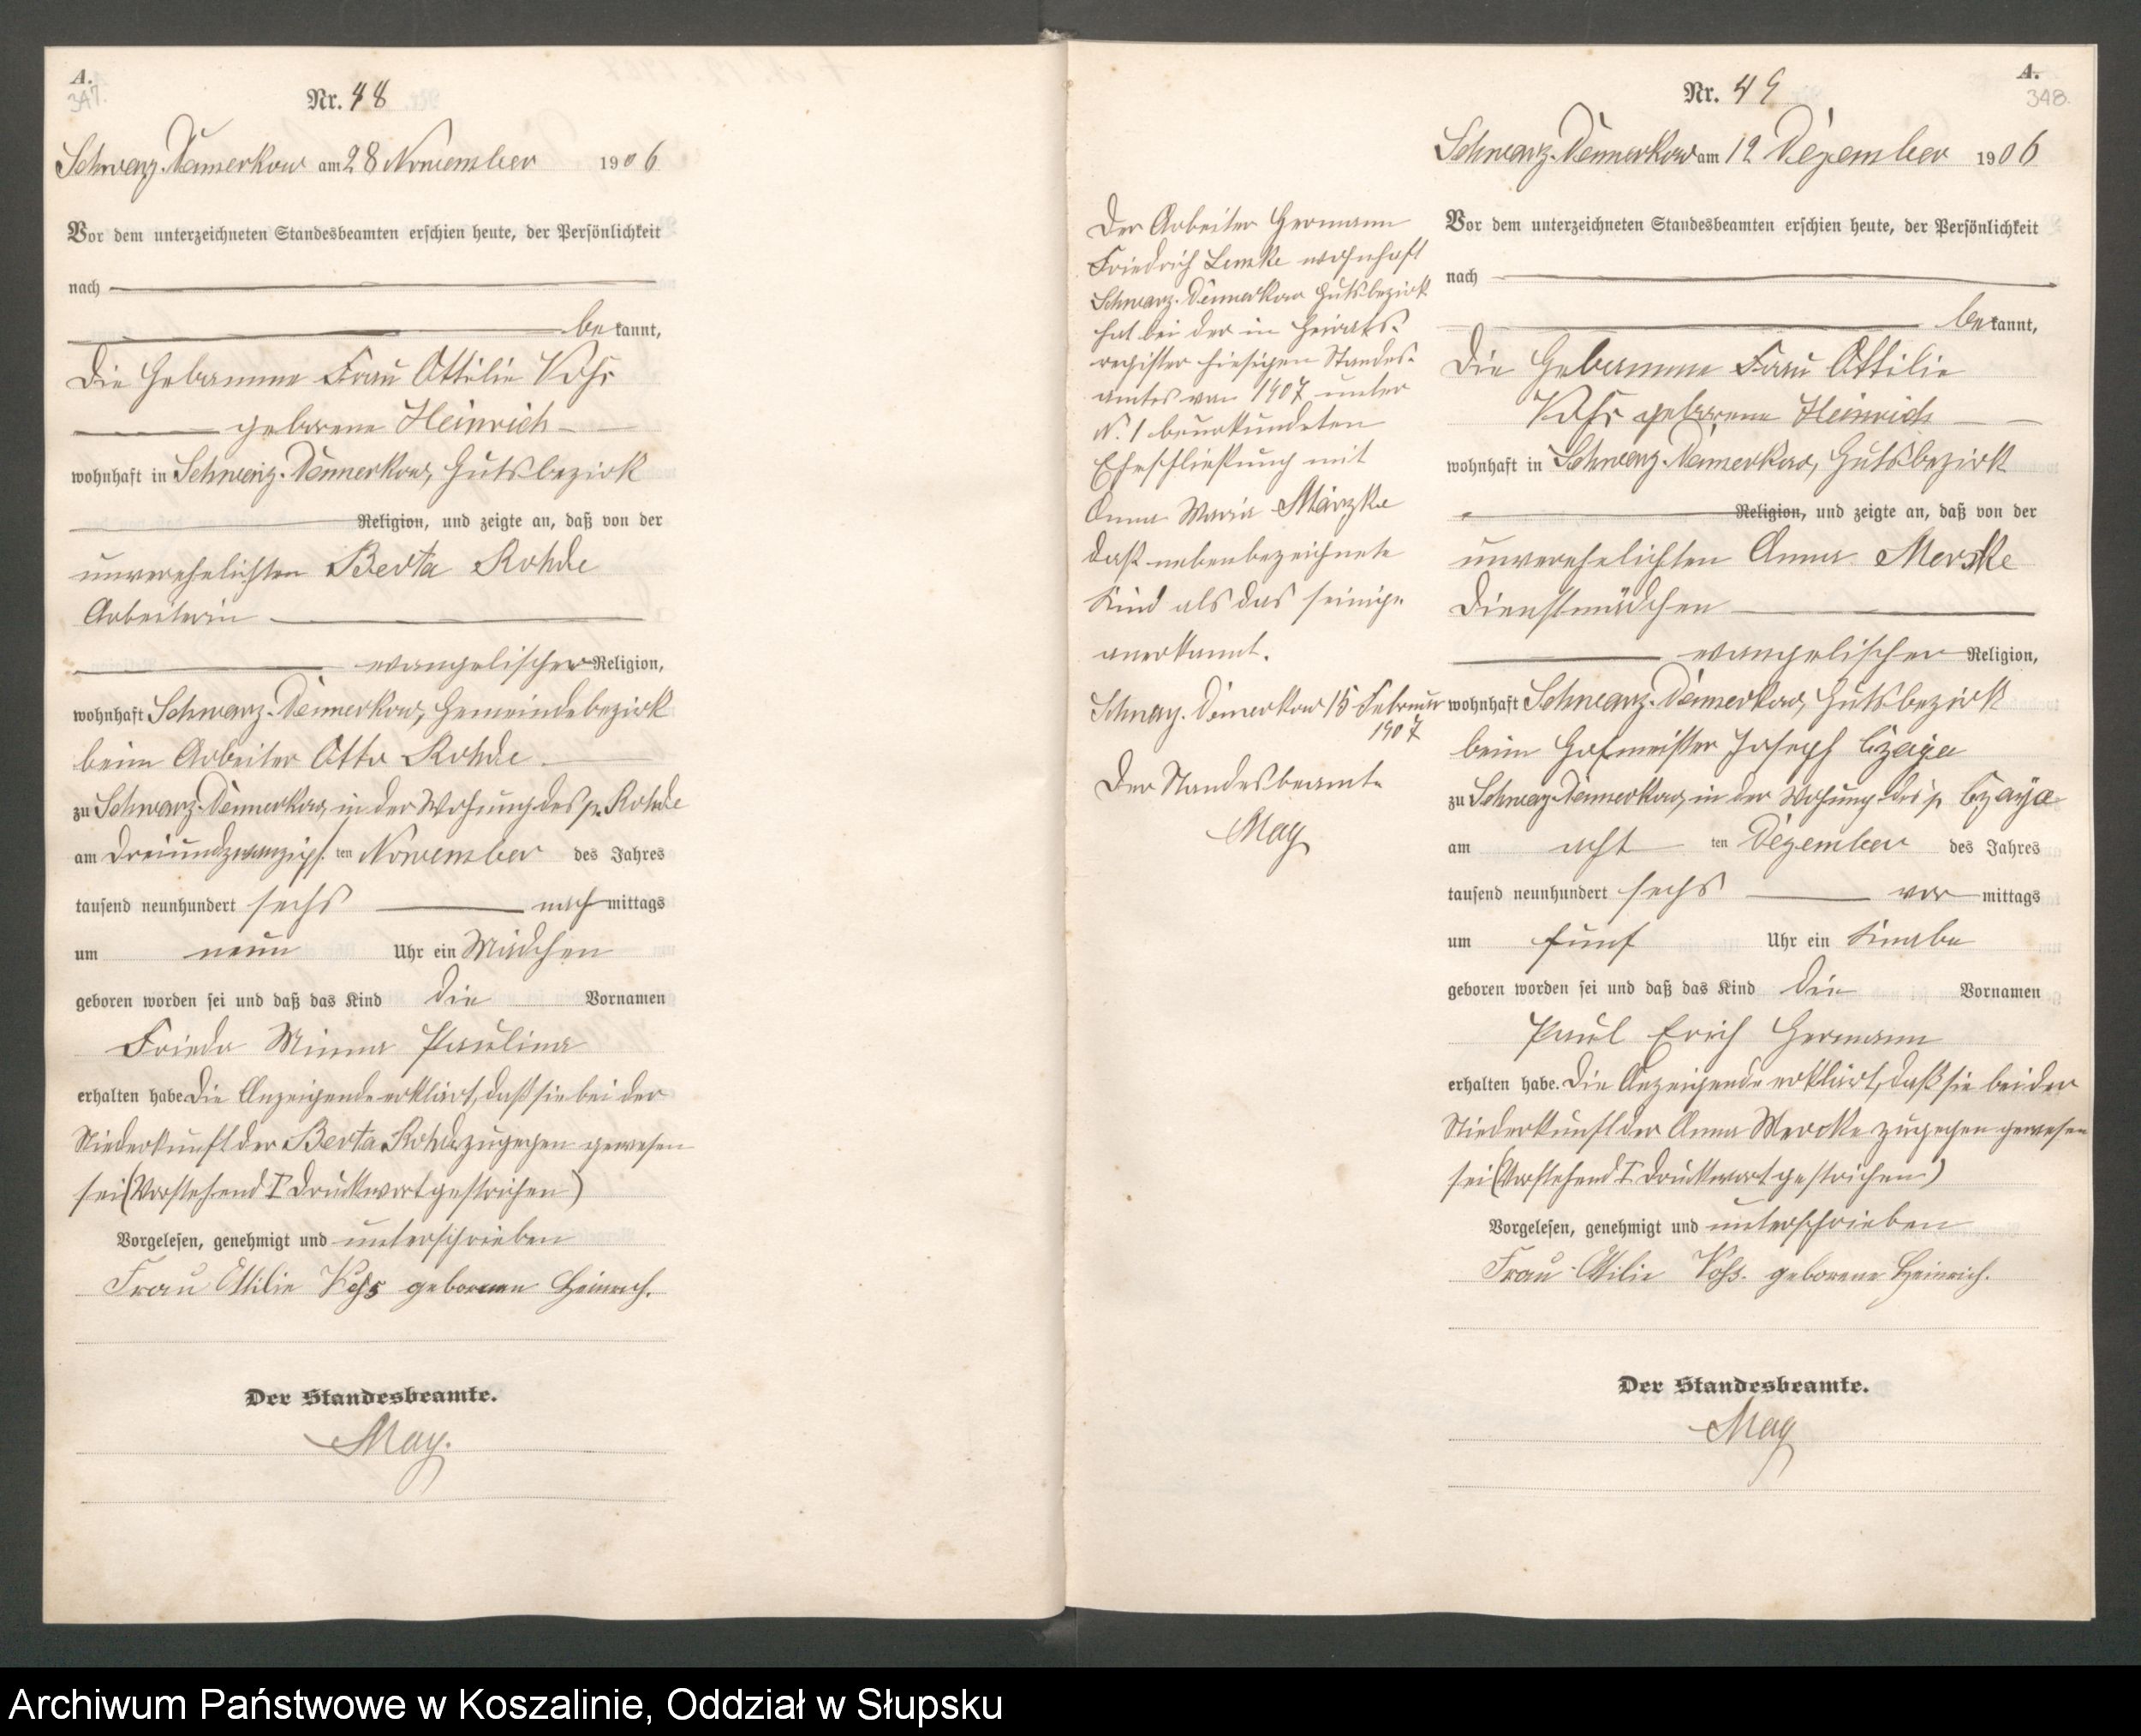 A.
347.
Nr. 48
Schwarz-Damerkow am 28 November 1906
Vor dem unterzeichneten Standesbeamten erschien heute, der Persönlichkeit
nach
be kannt,
die Hebamme Frau Ottilie Voß
geborene Heinrich
wohnhaft in Schwarz-Damerkow, Gutsbezirk
Religion, und zeigte an, daß von der
unverehelichten Berta Rohde
Arbeiterin
evangelischer Religion,
wohnhaft Schwarz-Damerkow, Gemeindebezirk
beim Arbeiter Otto Rohde
zu Schwarz-Damerkow, in der Wohnung des p. Rohde
am dreiundzwanzigs ten November des Jahres
tausend neunhundert sechs nach mittags
um neun Uhr ein Mädchen
geboren worden sei und daß das Kind die Vornamen
Frieda Minna Paulina
erhalten habe. Die Anzeigende erklärt, daß sie bei der
Niederkunft der Berta Rohde zugegen gewesen
sei (Vorstehend 1 Druckwort gestrichen)
Vorgelesen, genehmigt und unterschrieben
Frau Ottilie Voß geborene Heinrich.
Der Standesbeamte.
May.
A.
348.
Nr. 49
Schwarz-Damerkow am 12 Dezember 1906
Vor dem unterzeichneten Standesbeamten erschien heute, der Persönlichkeit
nach
be kannt,
die Hebamme Frau Ottilie
Voß geborene Heinrich
wohnhaft in Schwarz-Damerkow, Gutsbezirk
Religion, und zeigte an, daß von der
unverehelichten Anna Merske
Dienstmädchen
evangelischer Religion,
wohnhaft Schwarz-Damerkow, Gutsbezirk
beim Hofmeister Joseph Czaja
zu Schwarz-Damerkow, in der Wohnung des p. Czaja
am acht ten Dezember des Jahres
tausend neunhundert sechs vor mittags
um fünf Uhr ein Knabe
geboren worden sei und daß das Kind die Vornamen
Paul Erich Hermann
erhalten habe. Die Anzeigende erklärt, daß sie bei der
Niederkunft der Anna Merske zugegen gewesen
sei (Vorstehend 1 Druckwort gestrichen)
Vorgelesen, genehmigt und unterschrieben
Frau Ottilie Voß. geborene Heinrich.
Der Standesbeamte.
May
Der Arbeiter Hermann
Friedrich Lemke wohnhaft
Schwarz-Damerkow Gutsbezirk
hat bei der in Heirats-
register hiesigen Standes-
amtes von 1907 unter
N. 1 beurkundeten
Eheschließung mit
Anna Maria
daß nebenbezeichnete
Kind als das seinige
anerkannt.
Schwarz-Damerkow 15 Februar
1907
Der Standesbeamte
May
Archiwum Państwowe w Koszalinie, Oddział w Słupsku